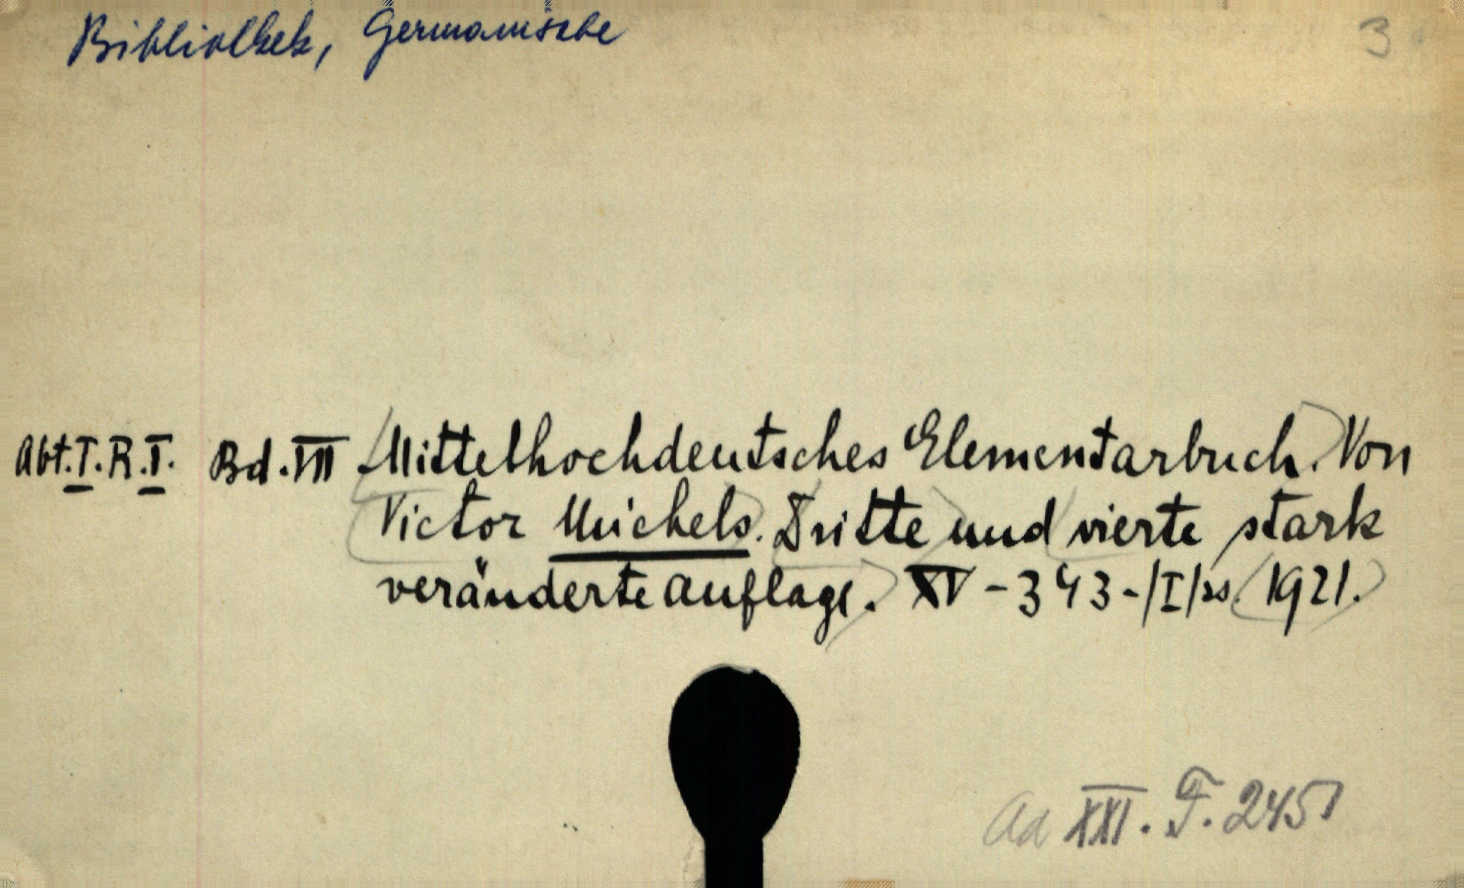 Bibliothek, Germanische
3
Abt.I.R.I. Bd.VII Mittelhochdeutsches Elementarbuch. Von
Victor Michels. Dritte und vierte stark
veränderte Auflage. XV - 343 - /I/ss. 1921.
Ad XXI. F. 2451